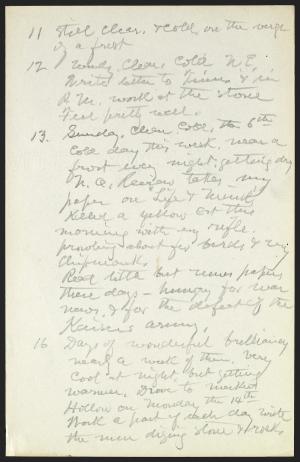 11 Still clear, & cold on the verge
of a frost
12 Windy, clear, cold N.E.
Write letter to Times & in
P.M. work at the stone
Feel pretty well.
13. Sunday, Clear, Cold, the 6th
cold day this week, near a
frost every night, getting dry
N.A. Review takes my
paper on Life & Mind.
Killed a yellow cat this
morning with my rifle.
prowling about for birds & my
chipmunks.
Read little but news papers
these days – hungry for war
news, & for the defeat of the
Kaisers army.
16 Days of wonderful brilliancy
nearly a week of them. Very
cool at night but getting
warmer. Drove to
Hollow on Monday the 14th
Work a part of each day with
the men digging stone & rocks